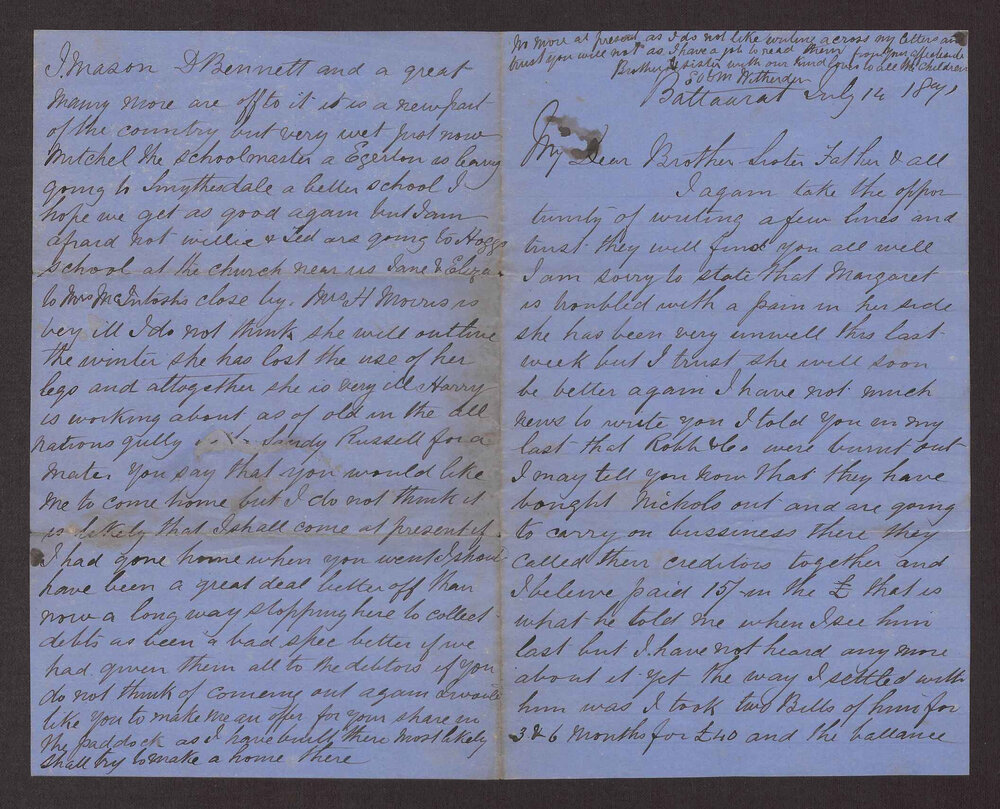 No more at present as I do not like writing across my letters and
trust you will not as I have a job to read them from your affectionate
Brother & sister with our kind love to all the children
& M Witherden
Ballaarat July 14
My Dear Brother Sister Father & all
I again take the oppor
tunity of writing a few lines and
trust they will find you all well
I am sorry to state that Margaret
is troubled with a pain in her side
she has been very unwell this last
week but I trust she will soon
be better again I have not much
news to write you I told you in my
last that Robb & Co were burnt out
I may tell you now that they have
bought Nichols out and are going
to carry on bussiness there they
called their creditors together and
I beleive paid 15/- in the £ that is
what he told me when I see him
last but I have not heard any more
about it yet the way I settled with
him was I took two Bills of him for
3 & 6 months for £40 and the ballance
J Mason D Bennett and a great
many more are off to it it is a new part
of the country but very wet just now
Mitchel the schoolmaster a Egerton is
going to Smythesdale a better school I
hope we get as good again but I am
afraid not willie & Ted are going to Hoggs
school at the church near us Jane & Eliza
to Mrs McIntoshs close by. Mrs H Morris is
very ill I do not think she will outlive
the winter she has lost the use of her
legs and altogether she is very ill Harry
is working about as of old in the all
nations gully Sandy Russell for a
mate. You say that you would like
me to come home but I do not think it
is likely that I shall come at present if
I had gone home when you went I should
have been a great deal better off than
now a long way stopping here to collect
debts as been a bad spec better if we
had given them all to the debtors if you
do not think of comeing out again I would
like you to make me an offer for your share in
the paddock as I have built there most likely
shall try to make a home there